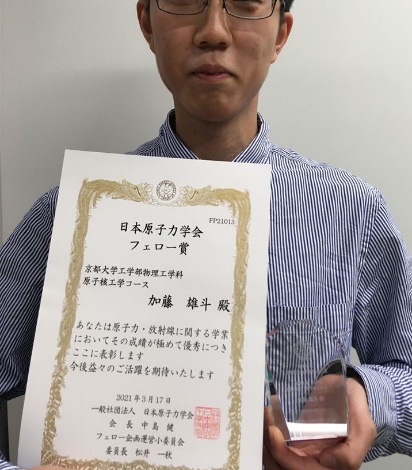 FP21013
日本原子力学会
フェロー賞
京都大学工学部物理工学科
原子核工学コース
加藤 雄斗 殿
あなたは原子力・放射線に関する学業
においてその成績が極めて優秀につき
ここに表彰します
今後益々のご活躍を期待いたします
2021年3月17日
一般社団法人 日本原子力学会
会 長 中島 健
フェロー企画運営小委員会
委員長 松井 一秋